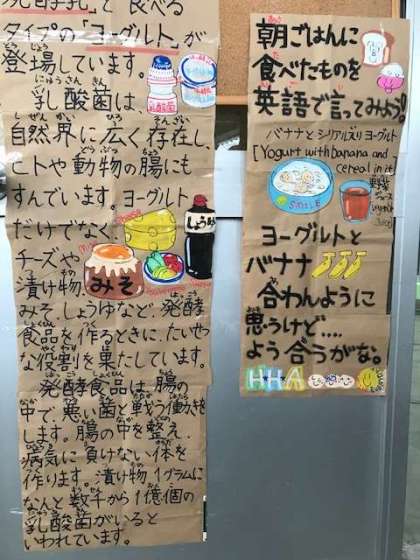 発酵乳」と食べる
タイプの「ヨーグルト」が
登場しています。
乳酸菌は、
自然界に広く存在し、
ヒトや動物の腸にも
すんでいます。ヨーグルト
だけでなく、
チーズや
漬け物、
みそ
しょうゆ
みそ、しょうゆなど、発酵
食品を作るときに、たいせつ
な役割を果たしています。
発酵食品は、腸の
中で、悪い菌と戦う働きを
します。腸の中を整え、
病気に負けない体を
作ります。漬け物1グラムに
なんと数千から1億個の
乳酸菌がいると
いわれています。
朝ごはんに
食べたものを
英語で言ってみよう!
バナナとシリアル入りヨーグルト
[Yogurt with banana and
cereal in it]
SMILE
野菜
ジュース
ヨーグルトと
バナナ
合わんように
思うけど....
よう合うがな。
HHA